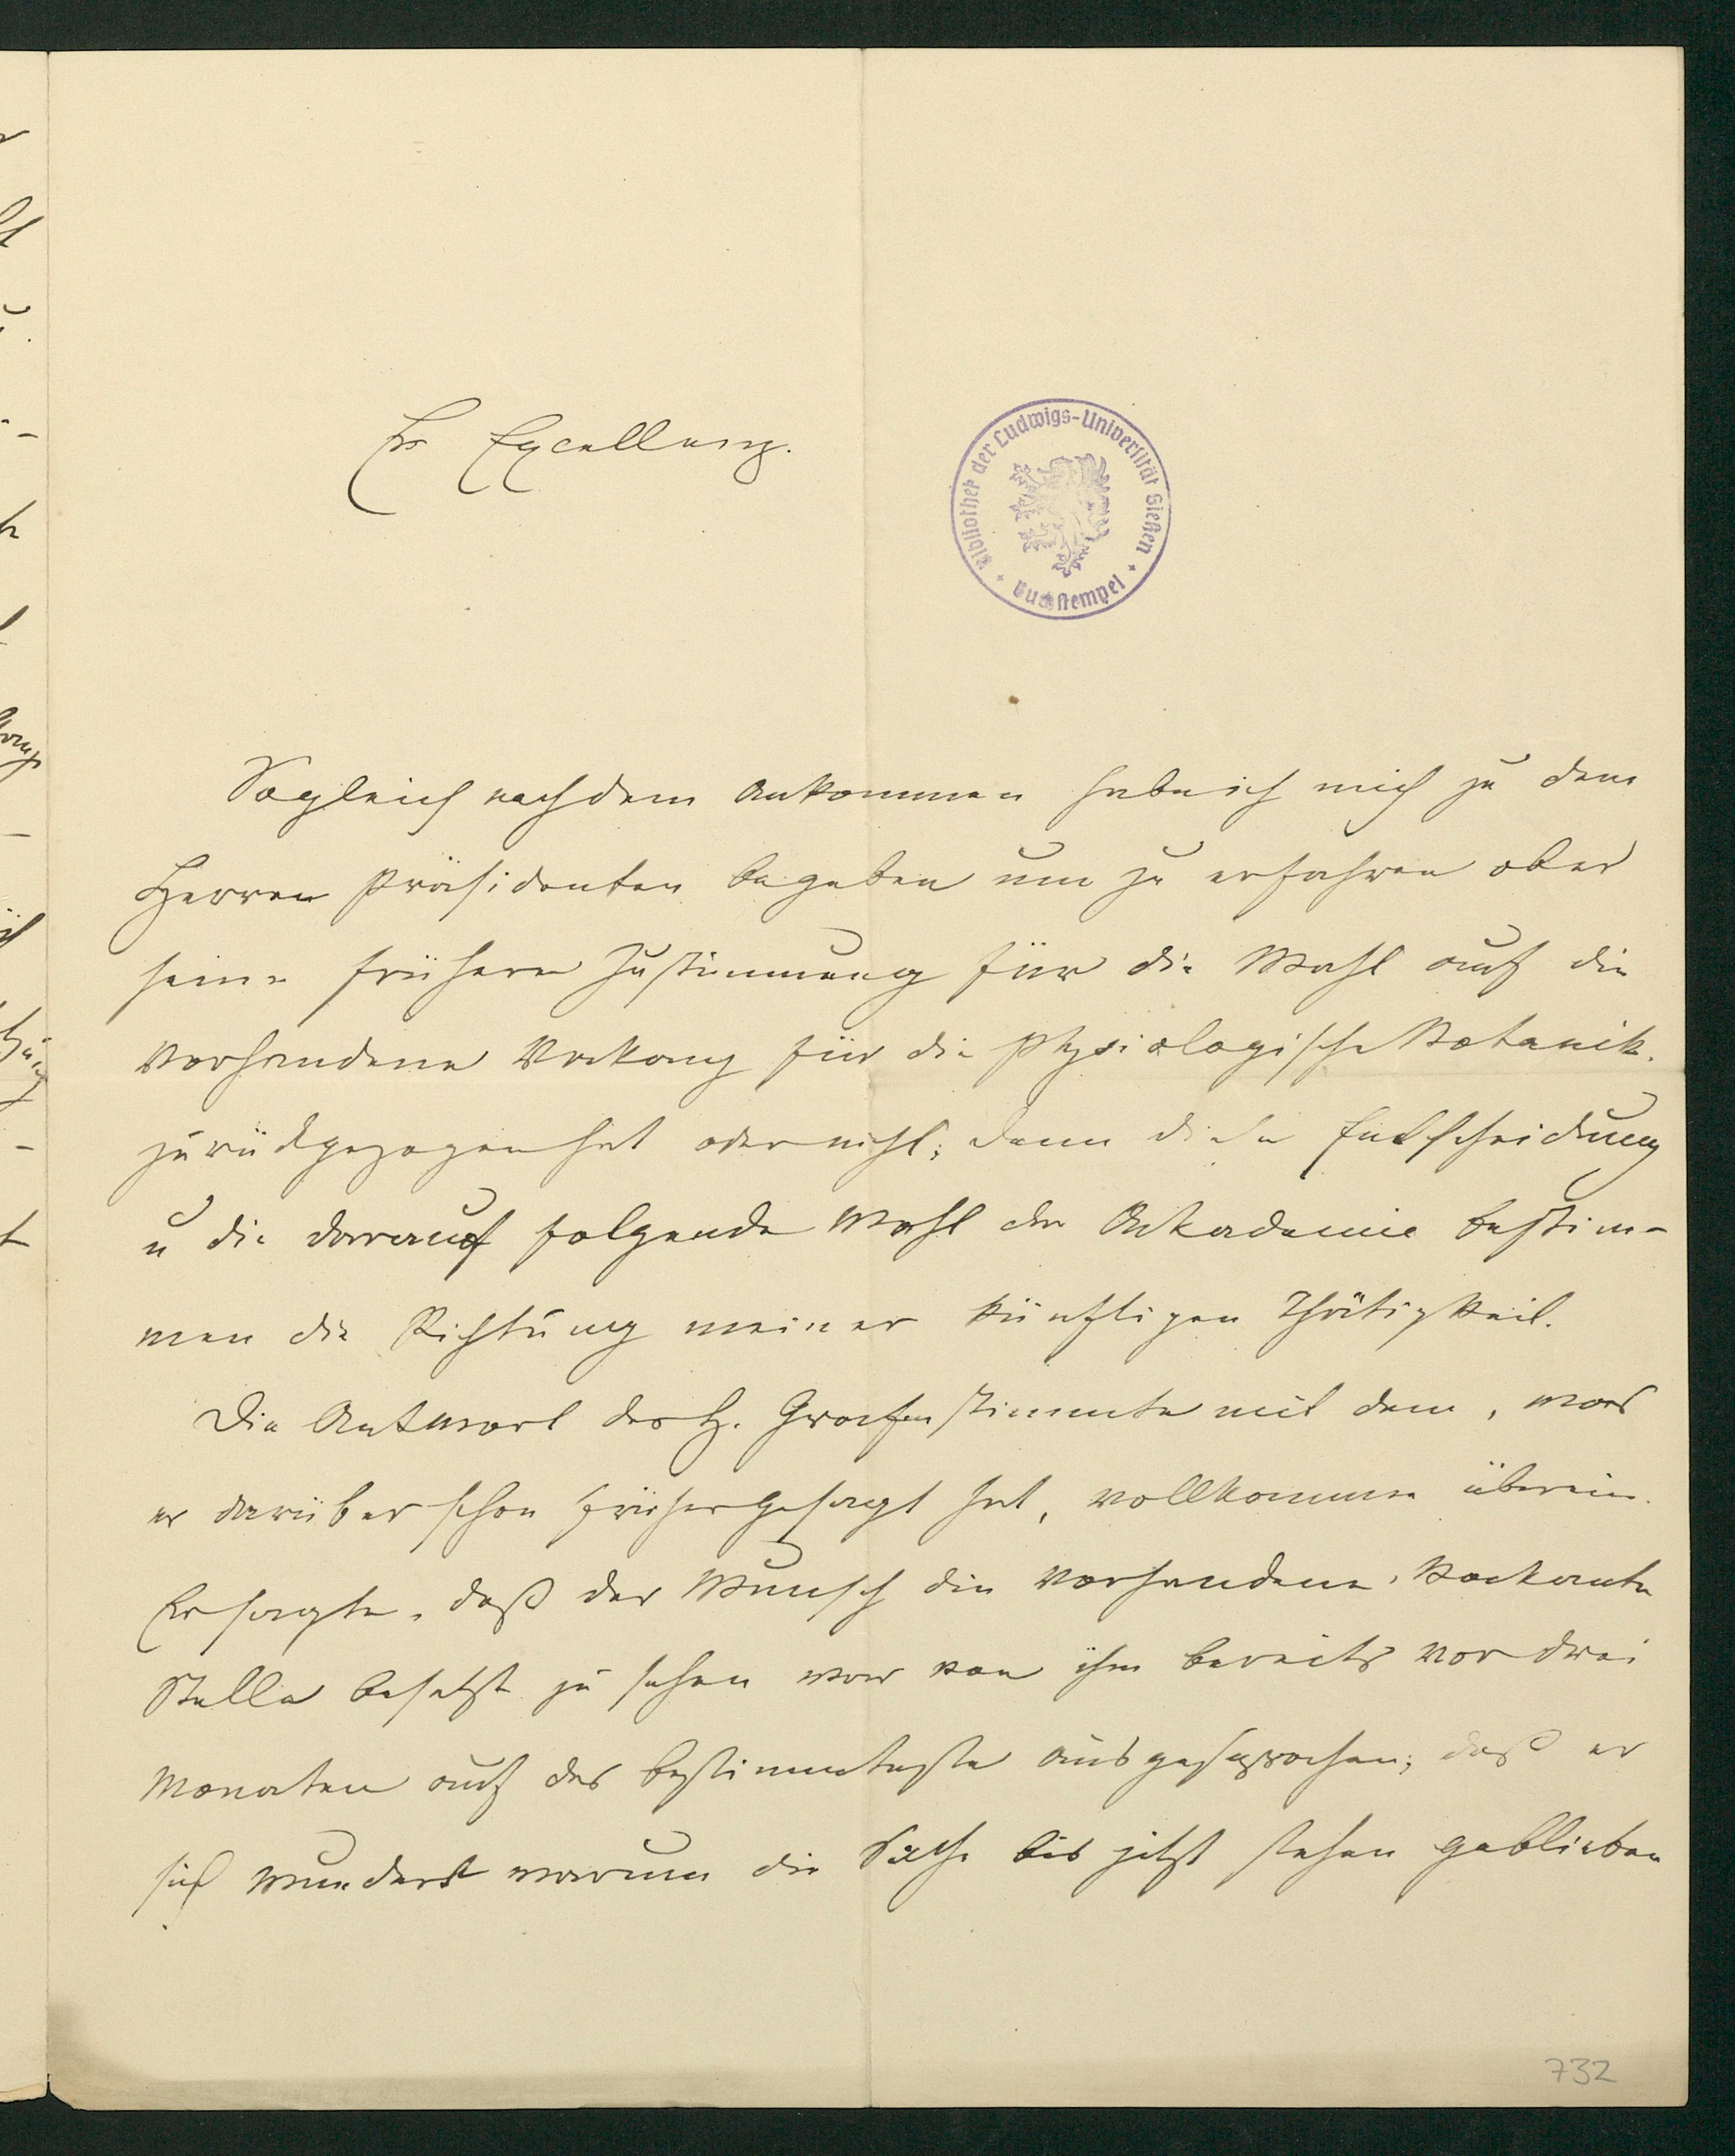 Er Excellenz.
Bibliothek der Ludwigs-Universität Gießen
Buchstempel
Sogleich nach dem Ankommen habe ich mich zu dem
Herren Präsidenten begeben um zu erfahren ob er
seine frühere Zustimmung für die Wahl auf die
vorhandene Vakanz für die physiologische Botanik
zurückgezogen hat oder nicht; denn diese Entscheidung
u die darauf folgende Wahl der Akademie bestim-
men die Richtung meiner künftigen Thätigkeit.
Die Antwort des H. Grafen stimmte mit dem, was
er darüber schon früher gesagt hat, vollkommen überein.
Er sagte, daß der Wunsch die vorhandene, vakante
Stelle besetzt zu sehen war von ihm bereits vor drei
Monaten auf das bestimmteste ausgesprochen; daß er
sich wundert warum die Sache bis jetzt stehen geblieben
732